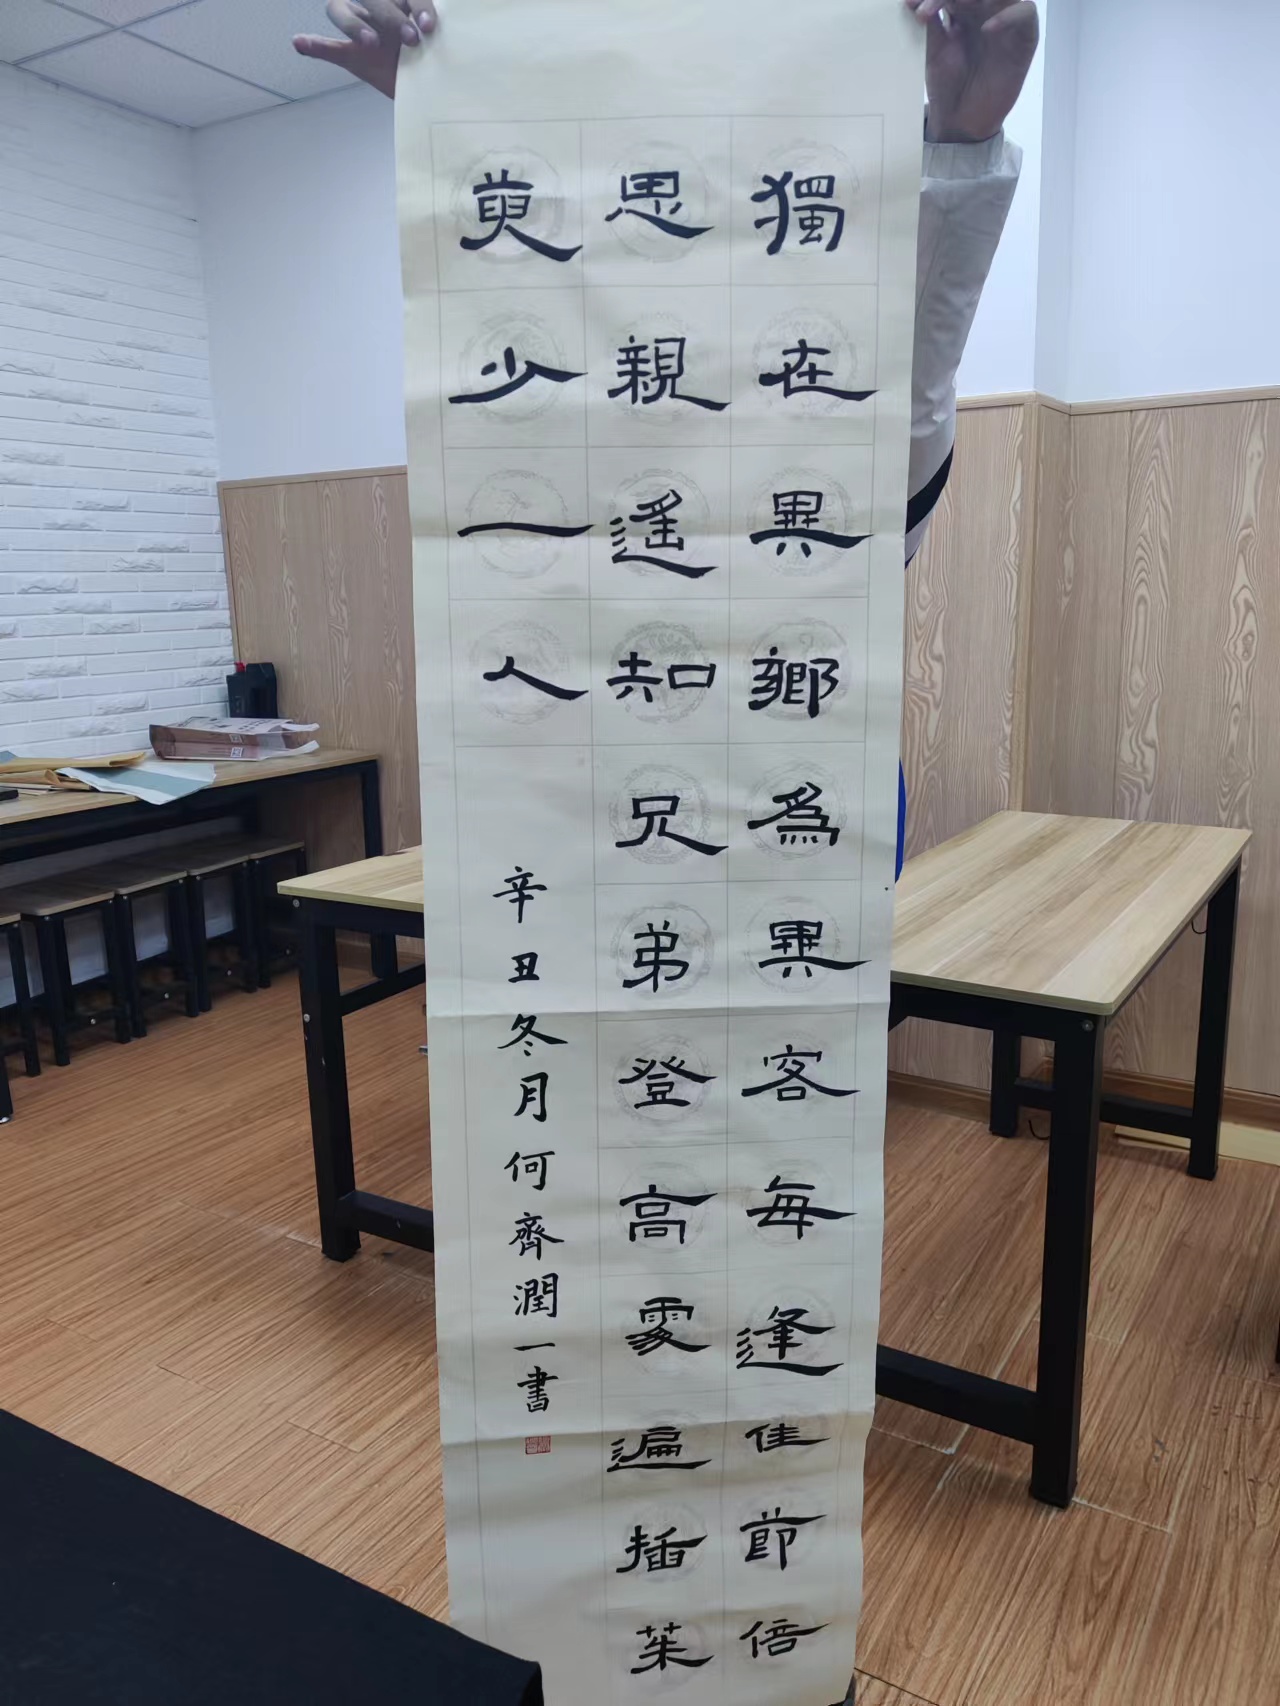 獨在異鄉爲異客每逢佳節倍
思親遙知兄弟登高處遍插茱
萸少一人
辛丑冬月何齊潤一書